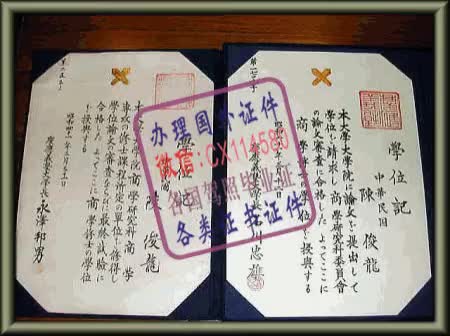 學位記
中華民国
陳俊龍
本大学大学院に論文を提出して
学位を請求し商學研究科委員会
の論文審査に合格した よってここに
商學
の学位を授與する
昭和
忠雄
陳俊龍
本大学大学院商学研究科商学
専攻の修士課程所定の単位を修得し
学位論文の審査ならびに最終試験に
合格した よってここに商学修士の学位
を授與する
慶應義塾大学長 永澤邦男
办理国外证件
微信:CX114580
各国驾照毕业证
各类证找证件